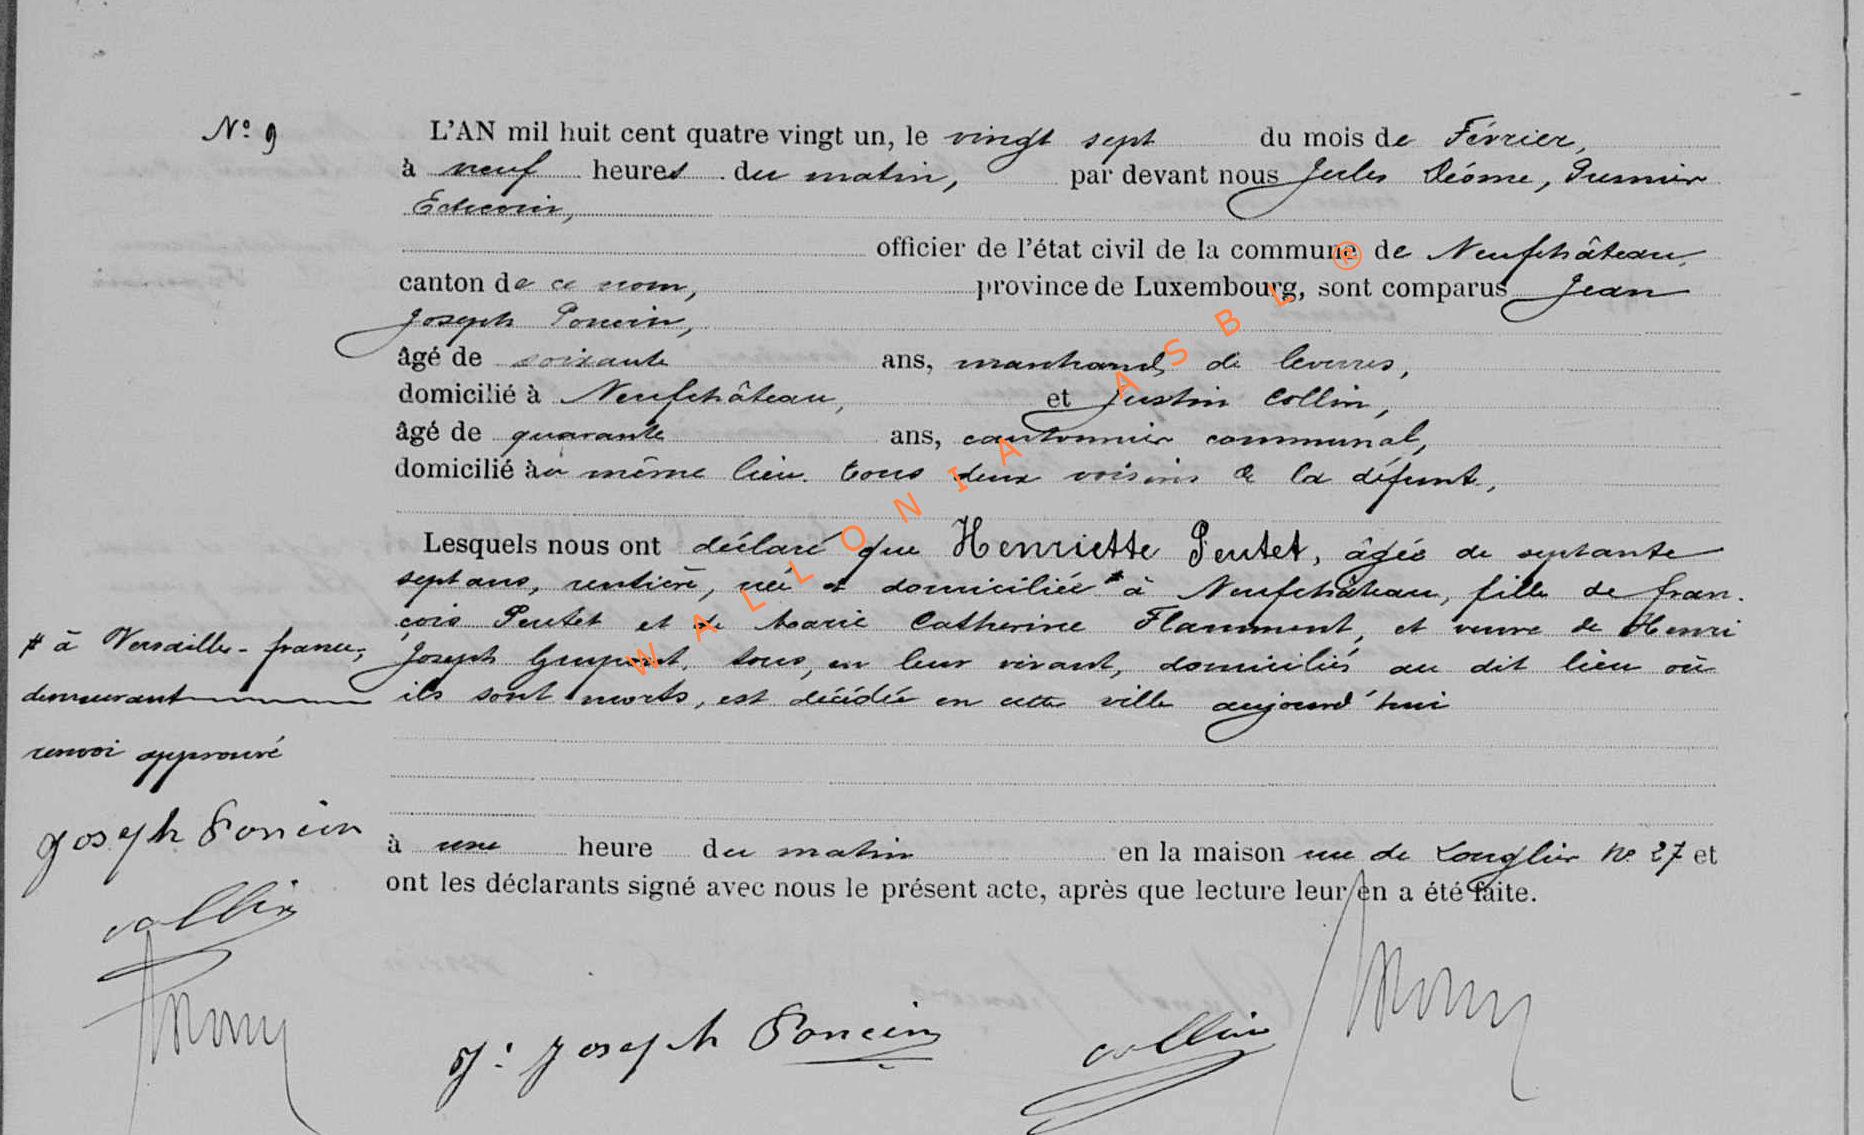 Nº 9
L'AN mil huit cent quatre vingt un, le vingt sept du mois de Février,
à neuf heures du matin, par devant nous Jules Déome, Premier
Echevin,
officier de l'état civil de la commune de Neufchâteau,
canton de ce nom, province de Luxembourg, sont comparus Jean
Joseph Poncin,
âgé de soixante ans, marchand de levures,
domicilié à Neufchâteau, et Justin Collin,
âgé de quarante ans, cantonnier communal,
domicilié au même lieu. tous deux voisins de la défunte,
Lesquels nous ont déclaré que Henriette Peutet, âgée de septante
sept ans, rentière, née et domiciliée # à Neufchâteau, fille de Fran-
çois Peutet et de Marie Catherine Flamment, et veuve de Henri
# à Versailles - france,
Joseph tous, en leur vivant, domiciliés au dit lieu où
demeurant
ils sont morts, est décédée en cette ville aujourd'hui
renvoi approuvé
Joseph Poncin
à une heure du matin en la maison rue de Longlier Nº 27 et
ont les déclarants signé avec nous le présent acte, après que lecture leur en a été faite.
Collin
J: Joseph Poncin
Collin
WALLONIA ASBL ®